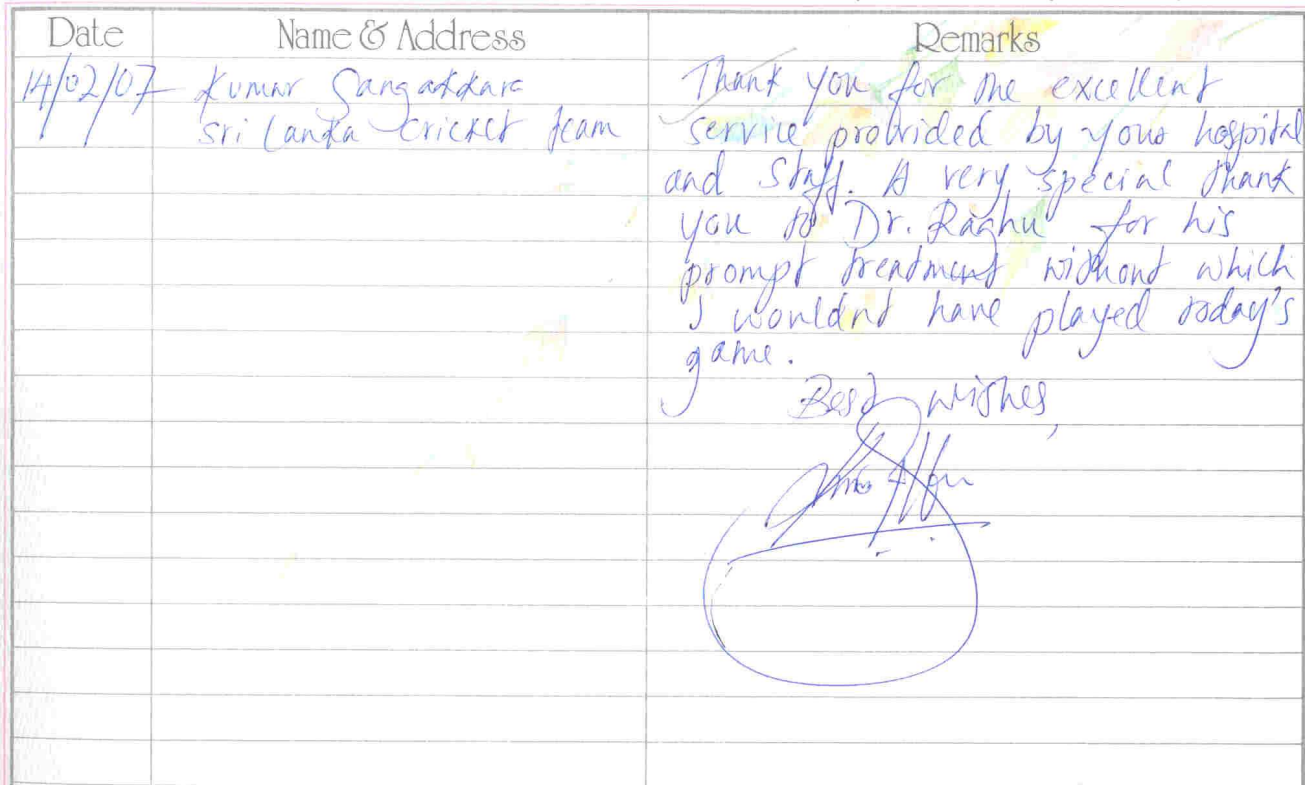 Date Name & Address Remarks
14/02/07 Kumar Sangakkara Thank you for the excellent
Sri Lanka cricket team service provided by your hospital
and staff. A very special thank
you to Dr. Raghu for his
prompt treatment without which
I wouldnt have played today's
game.
Best wishes,